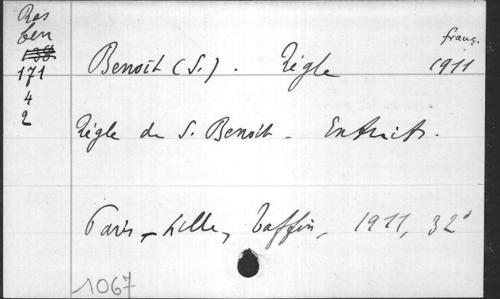 Res
ben
171
4
2
franç.
Benoit (S.). Règle 1911
Règle de S. Benoit - Extraits.
Paris - Lille, Taffin, 1911, 32°
1067